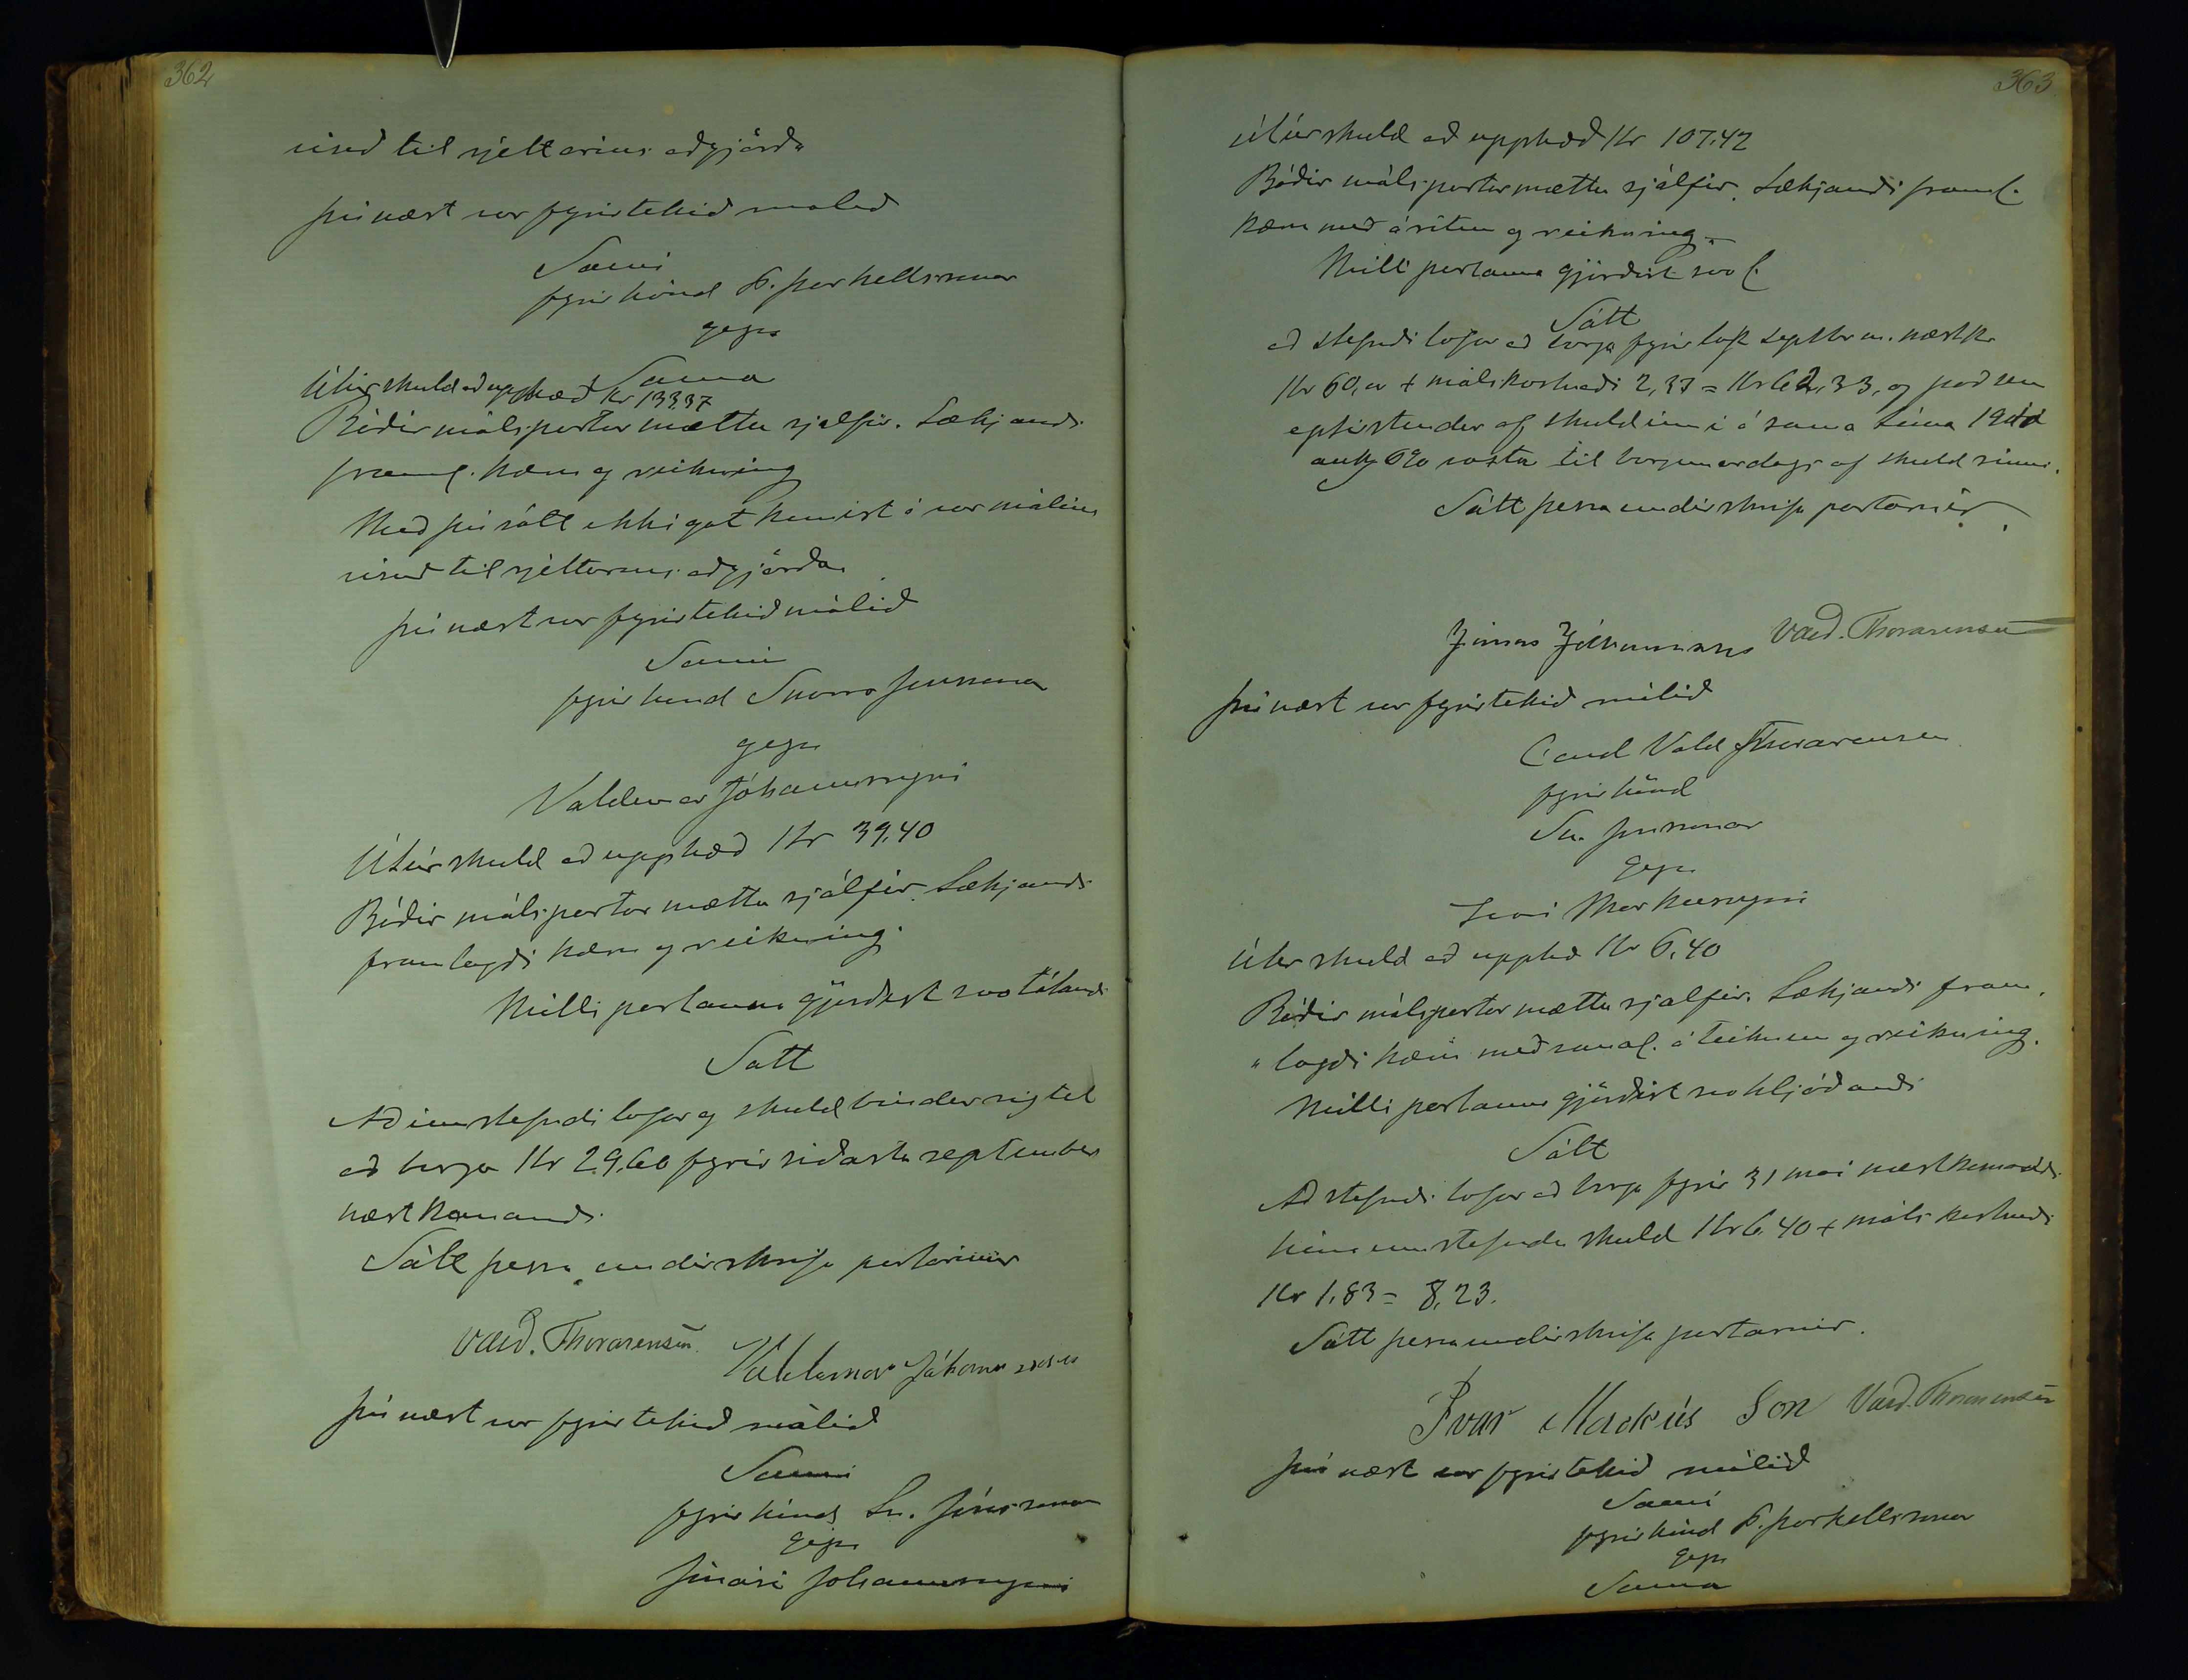 362
vísað til rjettarins aðgjörða
því næst var fyrirtekið malið
Sami
fyrir hönd P. Þorkellssonar
gegn
Sama
Útúr skuld að upphæð kr 133,37
Báðir málspartar mættu sjalfir. Sækjandi
framl. kæru og reikning
Með því sátt ekki gat komist á var málinu
vísað til rjettarins aðgjörða
því næst var fyrirtekið málið
Sami
fyrir hönd Snorra Jonssonar
gegn
Valdemar Jóhannssyni
Útúr skuld að upphæð Kr 39,40
Báðir málspartar mættu sjálfir. Sækjandi
framlagði kæru og reikning.
Milli partanna gjörðist svo látandi
Satt
Að innstefndi lofar og skuldbindur sig til
að borga Kr 29,60 fyrir síðasta september
næstkomandi.
Sátt þessa undirskrifa partarnir
Vald. Thorarensen
Valdemar Jóhannsson
því næst var fyrirtekið málið
Sami
fyrir hönd Sn. Jónssonar
gegn
Jónasi Johannssyni
363
útúr skuld að upphæð Kr 107,42
Báðir málspartar mættu sjálfir. Sækjandi framl.
kæru með áritun og reikning.
Milli partanna gjörðist svo l.
Sátt
að stefndi lofar að borga fyrir lok septbr m. næstk.
Kr 60, + málskostnaði 2,33 = Kr 62,33, og það sem
eptirstendur af skuldinni á sama tíma
auk 6% vaxta til borgunardags af skuld sinni.
Sátt þessa undirskrifa partarnir
Jónas Jóhannsson Vald. Thorarensen
því næst var fyrirtekið málið
Cand Vald Thorarensen
fyrir hönd
Sn. Jonssonar
gegn
Ivari Markussyni
Útúr skuld að upphæð Kr 6,40
Báðir málspartar mættu sjalfir. Sækjandi fram-
lagði kæru með samal. áteiknun og reikning.
Milli partanna gjörðist svohljóðandi
Sátt
Að stefndi lofar að borga fyrir 31 mai næstkomandi
hina umstefndu skuld Kr 6.40 + máls kostnaði
Kr 1,83 = 8,23.
Sátt þessa undirskrifa partarnir.
Ívar Markús Son Vald. Thorarensen
því næst var fyrirtekið málið
Sami
fyrir hönd P. Þorkellssonar
gegn
Sama